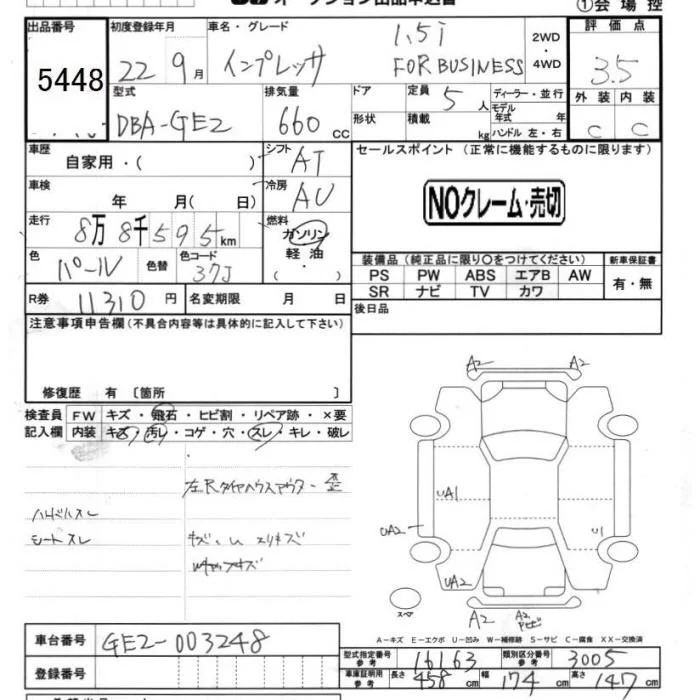 ①会 場 控
出品番号
5448
初度登録年月
22 9月
車名・グレード
インプレッサ
1.5i
FOR BUSINESS
2WD
・
4WD
評 価 点
3.5
外 装 内 装
C C
型式
DBA-GE2
排気量
660 cc
ドア
定員 5 人
形状
積載 kg
ディーラー・並行
モデル年式 年
ハンドル 左・右
車歴
自家用・( )
シフト
AT
セールスポイント (正常に機能するものに限ります)
NOクレーム・売切
車検
年 月( 日)
冷房
走行
8万 8千 595 km
燃料
ガソリン
軽 油
・
( )
色
パール
色替
色コード
37J
装備品 (純正品に限り〇をつけてください)
新車保証書
PS PW ABS エアB AW
SR ナビ TV カワ
有・無
R券 11310 円
名変期限 月 日
後日品
注意事項申告欄(不具合内容等は具体的に記入して下さい)
修復歴 有 〔箇所 〕
検査員
記入欄
FW キズ・飛石・ヒビ割・リペア跡・×要
内装 キズ・汚れ・コゲ・穴・スレ・キレ・破レ
ハンドルスレ
シートスレ
A2 A2
UA1
UA2
U1
UA2
A2
A2
スペア
A-キズ E-エクボ U-凹み W-補修跡 S-サビ C-腐食 XX-交換済
車台番号
GE2-003248
登録番号
型式指定番号
参考
16163
類別区分番号
参考
3005
車庫証明用
参考
長さ 458 cm
幅 174 cm
高さ 147 cm